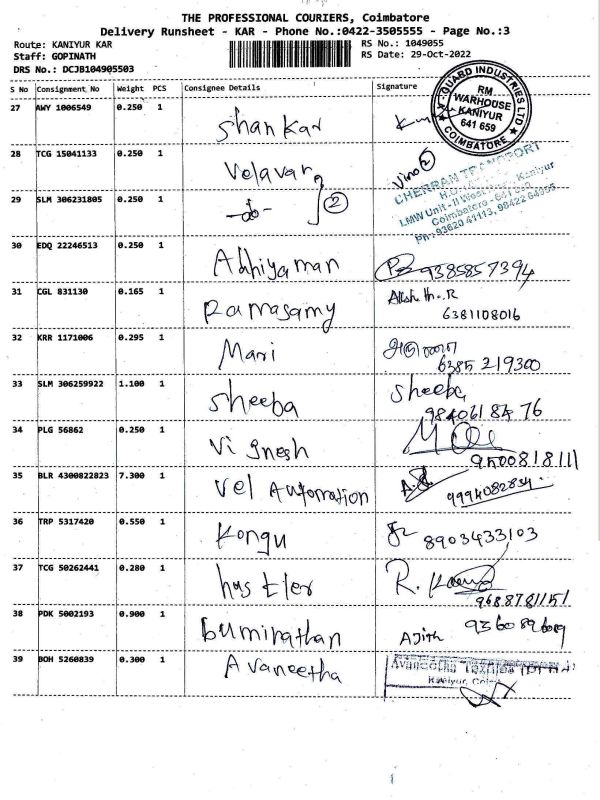 THE PROFESSIONAL COURIERS, Coimbatore
Delivery Runsheet - KAR - Phone No.:0422-3505555 - Page No.:3
Route: KANIYUR KAR
RS No.: 1049055
Staff: GOPINATH
RS Date: 29-Oct-2022
DRS No.: DCJB104905503
S No Consignment No Weight PCS Consignee Details Signature
GUARD INDUSTRIES LTD
RM
WARHOUSE
KANIYUR
641 659
COIMBATORE
27 AWY 1006549 0.250 1 Shankar
28 TCG 15041133 0.250 1 Velavan Vino 2
CHERRAN TRANSPORT
LMW Unit - II West, Kaniyur
Coimbatore - 641 659
29 SLM 306231805 0.250 1 -do- 2
30 EDQ 22246513 0.250 1 Adhiyaman 9385857394
31 CGL 831130 0.165 1 Ramasamy R
6381108016
32 KRR 1171006 0.295 1 Mari
6385 219300
33 SLM 306259922 1.100 1 Sheeba Sheeba
34 PLG 56862 0.250 1 Vignesh
35 BLR 4300822823 7.300 1 Vel Automation
9994082834
36 TRP 5317420 0.550 1 Kongu 8903433103
37 TCG 50262441 0.280 1 hustler R.
38 PDK 5002193 0.900 1 bumirathan Ajith
39 BOH 5260839 0.300 1 Avaneetha Avaneetha
Kaniyur,